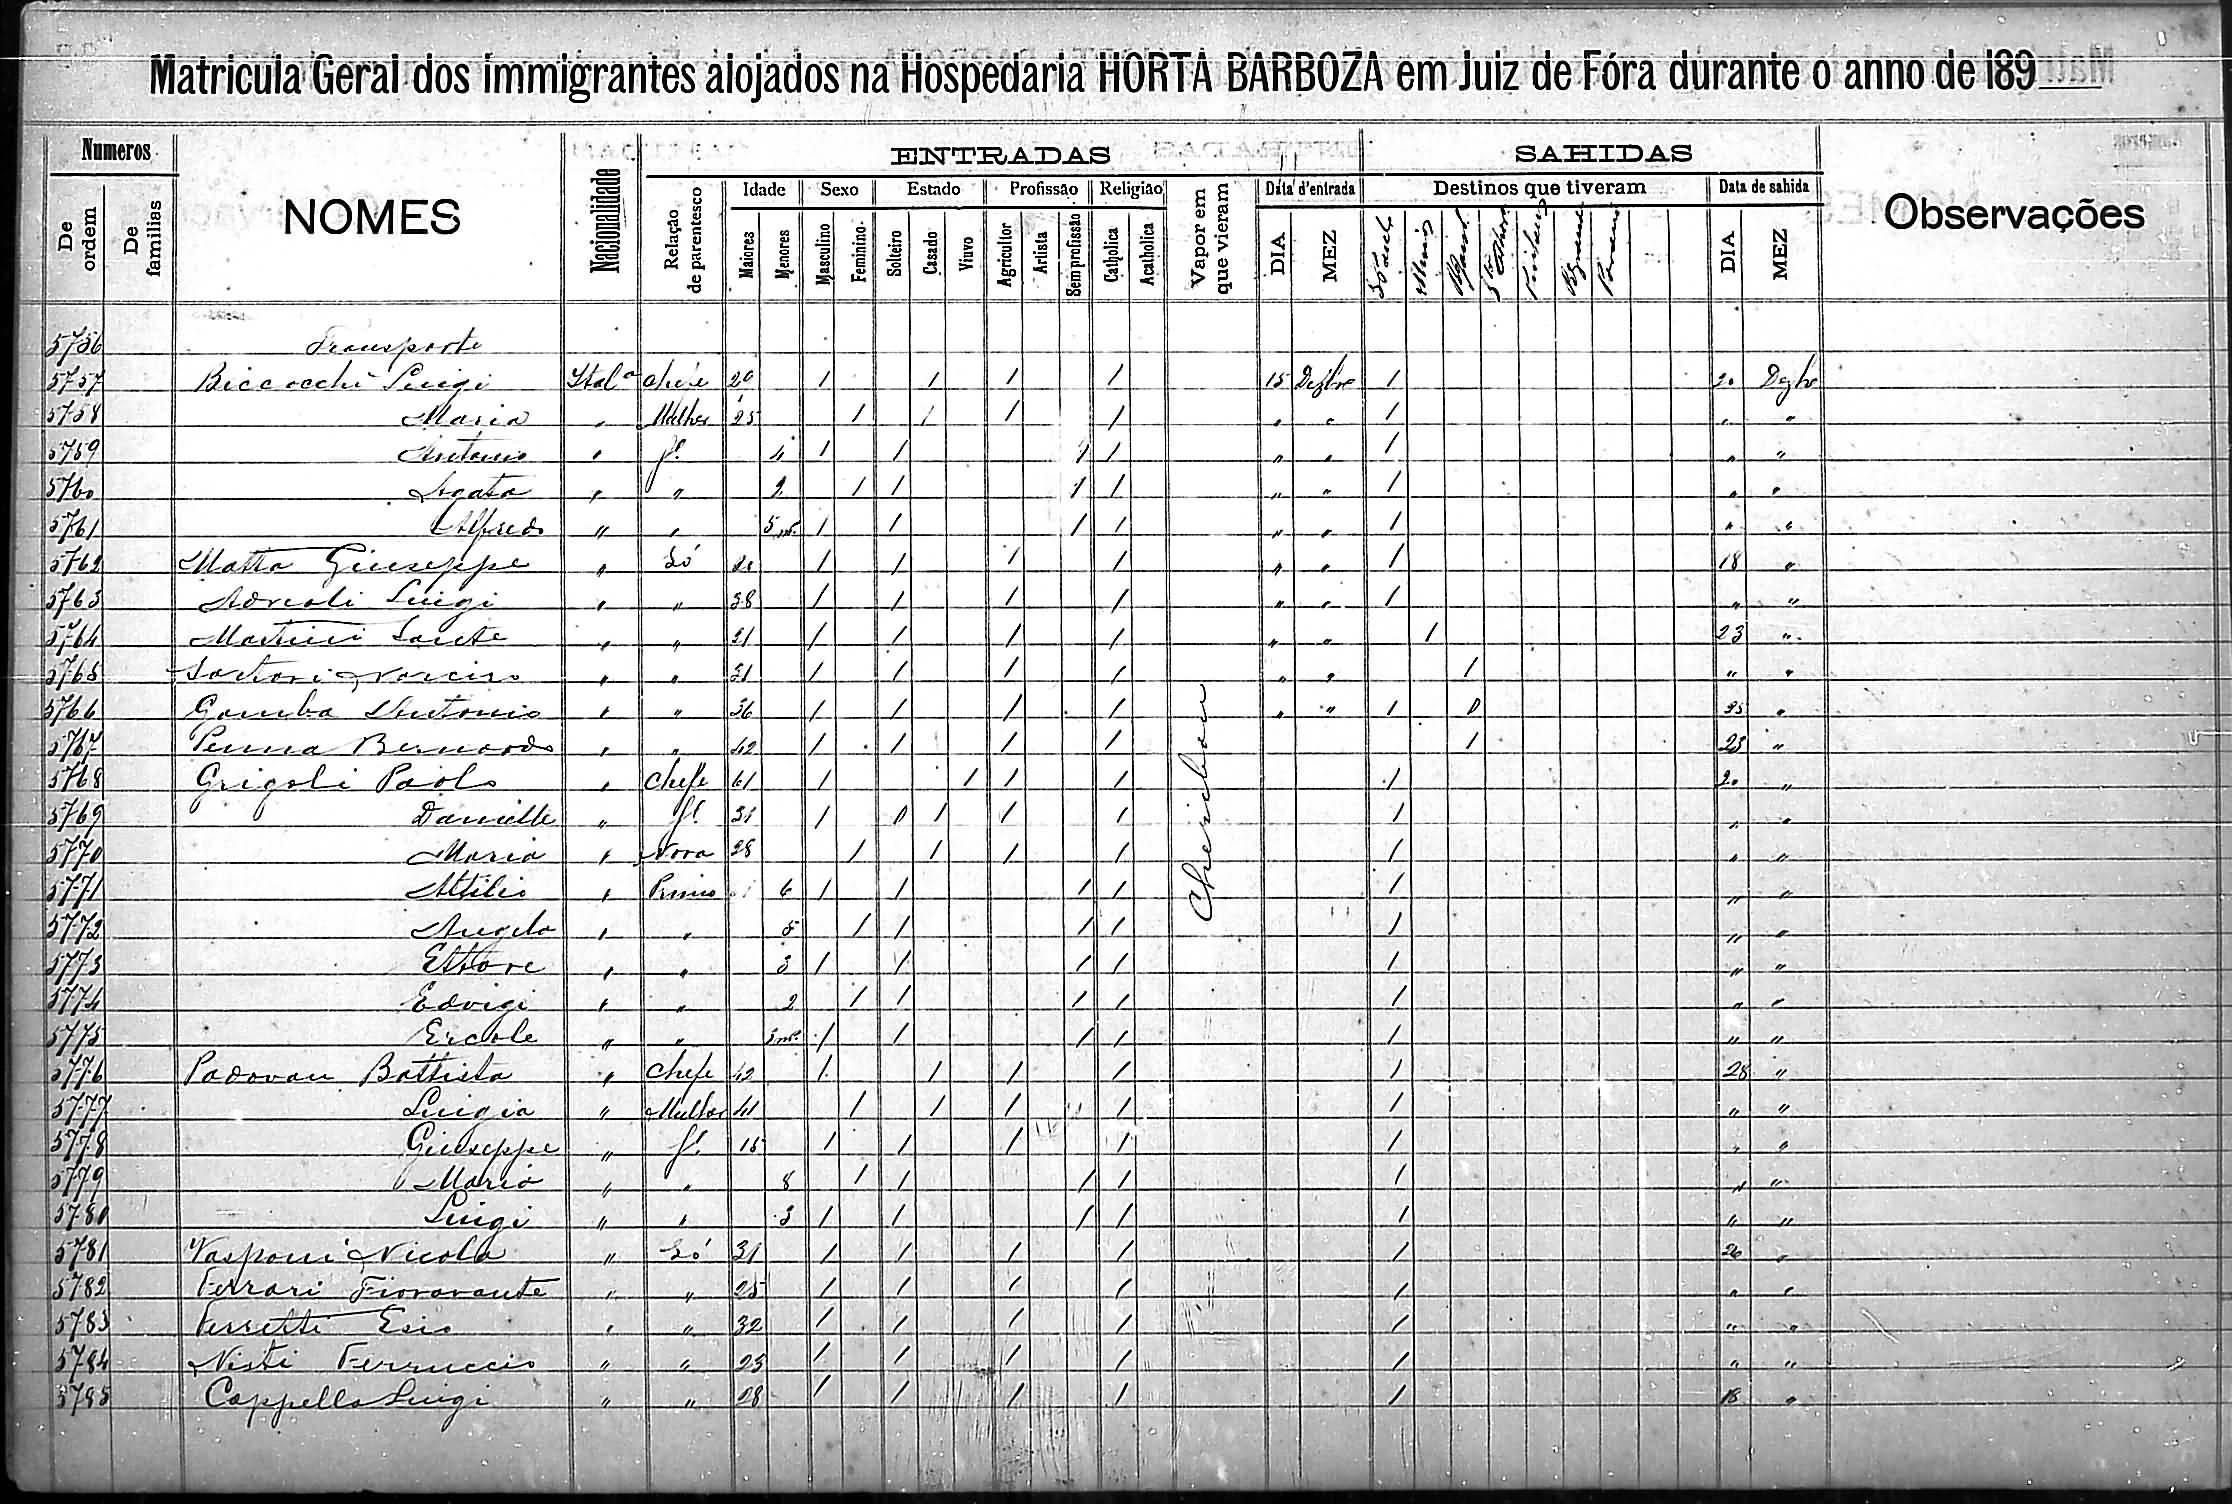 Matricula Geral dos immigrantes alojados na Hospedaria HORTA BARBOZA em Juiz de Fóra durante o anno de 189
Numeros
De ordem
De familias
NOMES
Nacionalidade
ENTRADAS
Relação de parentesco
Idade
Maiores
Menores
Sexo
Masculino
Feminino
Estado
Solteiro
Casado
Viuvo
Profissão
Agricultor
Artista
Sem profissão
Religião
Catholica
Acatholica
Vapor em que vieram
Data d'entrada
DIA
MEZ
SAHIDAS
Destinos que tiveram
Data de sahida
DIA
MEZ
Observações
5756 Transporte
5757 Biccocchi Luigi Ital.a chefe 29 1 1 1 1 15 Dezbre 1 20 Dezbr
5758 Maria " Mulher 25 1 1 1 1 " " 1 " "
5759 Antonio " fo. 4 1 1 1 1 " " 1 " "
5760 Agata " " 2 1 1 1 1 " " 1 " "
5761 Alfredo " " 5 m. 1 1 1 1 " " 1 " "
5762 Matta Giuseppe " Só 1 1 1 1 " " 1 18 "
5763 Luigi " " 38 1 1 1 1 " " 1 " "
5764 Martini Sante " " 21 1 1 1 1 " " 1 23 "
5765 Sartori Narciso " " 1 1 1 1 " " 1 " "
5766 Gamba Antonio " " 36 1 1 1 1 " " 1 0 "
5767 Penna Bernardo " " 42 1 1 1 1 1 23 "
5768 Grigoli Paolo " Chefe 61 1 1 1 1 1 20 "
5769 Danielle " fo. 1 0 1 1 1 1 " "
5770 Maria " Nora 28 1 1 1 1 1 " "
5771 Attilio " 6 1 1 1 1 1 " "
5772 Angela " " 5 1 1 1 1 1 " "
5773 Ettore " " 3 1 1 1 1 1 " "
5774 Edvigi " " 2 1 1 1 1 1 " "
5775 Ercole " " 3 m. 1 1 1 1 1 " "
5776 Padovan Battista " Chefe 42 1 1 1 1 1 28 "
5777 Luigia " Mulher 41 1 1 1 1 1 " "
5778 Giuseppe " fo. 15 1 1 1 1 1 " "
5779 Maria " " 8 1 1 1 1 1 " "
5780 Luigi " " 3 1 1 1 1 1 " "
5781 Vasponi Nicola " Só 31 1 1 1 1 1 26 "
5782 Ferrari Fioravante " " 25 1 1 1 1 1 " "
5783 Ferretti " " 32 1 1 1 1 1 " "
5784 Nisti Ferruccio " " 1 1 1 1 1 " "
5785 Cappella Luigi " " 28 1 1 1 1 1 18 "